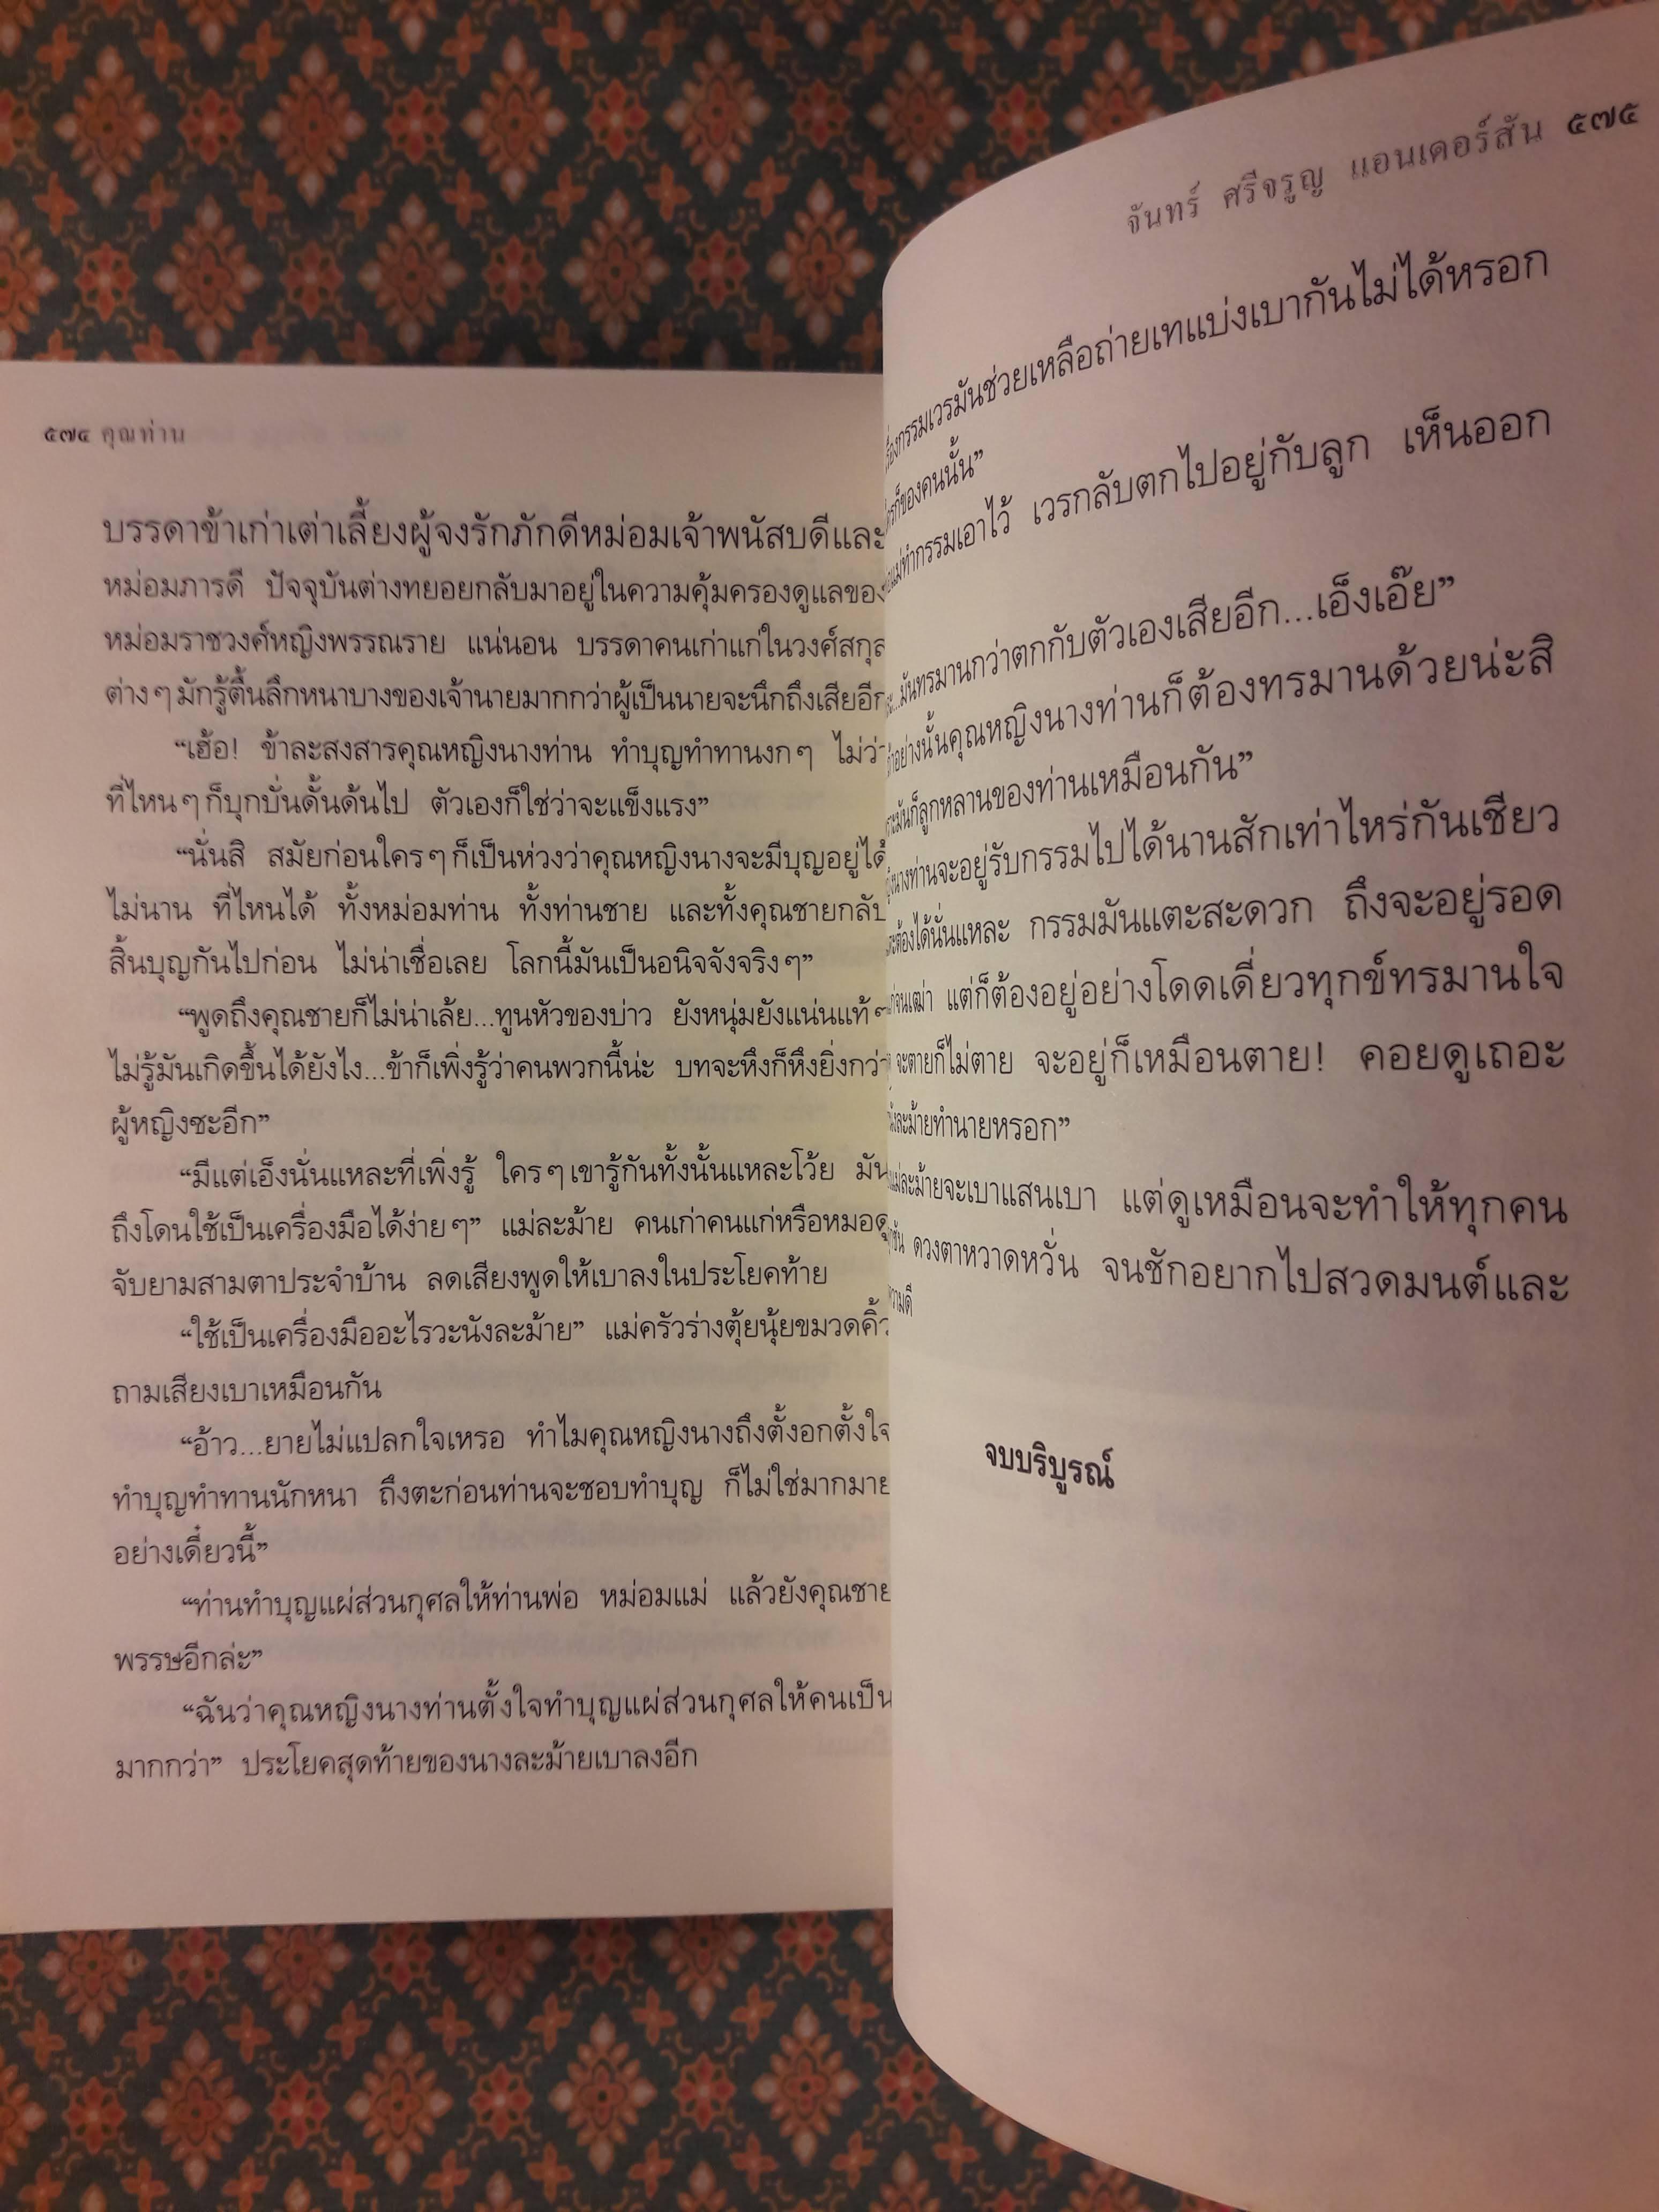 ๕๗๔ คุณท่าน
บรรดาข้าเก่าเต่าเลี้ยงผู้จงรักภักดีหม่อมเจ้าพนัสบดีและ
หม่อมภารดี ปัจจุบันต่างทยอยกลับมาอยู่ในความคุ้มครองดูแลของ
หม่อมราชวงศ์หญิงพรรณราย แน่นอน บรรดาคนเก่าแก่ในวงศ์สกุล
ต่างๆ มักรู้ตื้นลึกหนาบางของเจ้านายมากกว่าผู้เป็นนายจะนึกถึงเสียอีก
“เฮ้อ! ข้าละสงสารคุณหญิงนางท่าน ทำบุญทำทานงกๆ ไม่ว่า
ที่ไหนๆ ก็บุกบั่นดั้นด้นไป ตัวเองก็ใช่ว่าจะแข็งแรง”
“นั่นสิ สมัยก่อนใครๆ ก็เป็นห่วงว่าคุณหญิงนางจะมีบุญอยู่ได้
ไม่นาน ที่ไหนได้ ทั้งหม่อมท่าน ทั้งท่านชาย และทั้งคุณชายกลับ
สิ้นบุญกันไปก่อน ไม่น่าเชื่อเลย โลกนี้มันเป็นอนิจจังจริงๆ”
“พูดถึงคุณชายก็ไม่น่าเล้ย...ทูนหัวของบ่าว ยังหนุ่มยังแน่นแท้ๆ
ไม่รู้มันเกิดขึ้นได้ยังไง...ข้าก็เพิ่งรู้ว่าคนพวกนี้น่ะ บทจะหึงก็หึงยิ่งกว่า
ผู้หญิงซะอีก”
“มีแต่เอ็งนั่นแหละที่เพิ่งรู้ ใครๆ เขารู้กันทั้งนั้นแหละโว้ย มัน
ถึงโดนใช้เป็นเครื่องมือได้ง่ายๆ” แม่ละม้าย คนเก่าคนแก่หรือหมอดู
จับยามสามตาประจำบ้าน ลดเสียงพูดให้เบาลงในประโยคท้าย
“ใช้เป็นเครื่องมืออะไรวะนังละม้าย” แม่ครัวร่างตุ้ยนุ้ยขมวดคิ้ว
ถามเสียงเบาเหมือนกัน
“อ้าว...ยายไม่แปลกใจเหรอ ทำไมคุณหญิงนางถึงตั้งอกตั้งใจ
ทำบุญทำทานนักหนา ถึงตะก่อนท่านจะชอบทำบุญ ก็ไม่ใช่มากมาย
อย่างเดี๋ยวนี้”
“ท่านทำบุญแผ่ส่วนกุศลให้ท่านพ่อ หม่อมแม่ แล้วยังคุณชาย
พรรษอีกล่ะ”
“ฉันว่าคุณหญิงนางท่านตั้งใจทำบุญแผ่ส่วนกุศลให้คนเป็น
มากกว่า” ประโยคสุดท้ายของนางละม้ายเบาลงอีก
จันทร์ ศรีจรูญ แอนเดอร์สัน ๕๗๕
กรรมเวรมันช่วยเหลือถ่ายเทแบ่งเบากันไม่ได้หรอก
ก็ของคนนั้น”
แม่ทำกรรมเอาไว้ เวรกลับตกไปอยู่กับลูก เห็นออก
...มันทรมานกว่าตกกับตัวเองเสียอีก...เอ็งเอ๊ย”
อย่างนั้นคุณหญิงนางท่านก็ต้องทรมานด้วยน่ะสิ
มันก็ลูกหลานของท่านเหมือนกัน”
นางท่านจะอยู่รับกรรมไปได้นานสักเท่าไหร่กันเชียว
ต้องได้นั่นแหละ กรรมมันแตะสะดวก ถึงจะอยู่รอด
จนเฒ่า แต่ก็ต้องอยู่อย่างโดดเดี่ยวทุกข์ทรมานใจ
จะตายก็ไม่ตาย จะอยู่ก็เหมือนตาย! คอยดูเถอะ
ละม้ายทำนายหรอก”
แม่ละม้ายจะเบาแสนเบา แต่ดูเหมือนจะทำให้ทุกคน
ดวงตาหวาดหวั่น จนชักอยากไปสวดมนต์และ
ความดี
จบบริบูรณ์